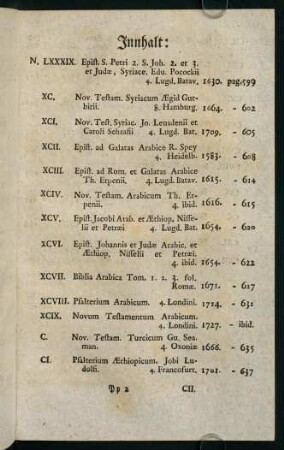 Innhalt:
N. LXXXIX. Epist. S. Petri 2. S. Joh. 2. et 3.
et Judæ, Syriace. Edu. Pocockii
4. Lugd. Batav. 1630. pag. 599
XC. Nov. Testam. Syriacum Ægid Gut-
birii. 8. Hamburg. 1664. - 602
XCI. Nov. Test. Syriac. Jo. Leusdenii et
Caroli Schaafii 4. Lugd. Bat. 1709. - 605
XCII. Epist. ad Galatas Arabice R. Spey
4. Heidelb. 1583. - 608
XCIII. Epist. ad Rom. et Galatas Arabice
Th. Erpenii, 4. Lugd. Batav. 1615. - 614
XCIV. Nov. Testam. Arabicum Th. Er-
penii, 4. ibid. 1616. - 615
XCV. Epist. Jacobi Arab. et Æthiop, Nisse-
lii et Petræi 4. Lugd. Bat. 1654. - 620
XCVI. Epist. Johannis et Judæ Arabic. et
Æthiop, Nisselii et Petræi.
4. ibid. 1654. - 622
XCVII. Biblia Arabica Tom. 1. 2. 3. fol.
Romæ. 1671. - 617
XCVIII. Psalterium Arabicum. 4. Londini. 1724. - 631
XCIX. Novum Testamentum Arabicum.
4. Londini. 1727. - ibid.
C. Nov. Testam. Turcicum Gu. Sea-
man. 4. Oxoniæ 1666. - 635
CI. Psalterium Æthiopicum. Jobi Lu-
dolfi. 4. Francofurt. 1701. - 637
Pp 2 CII.